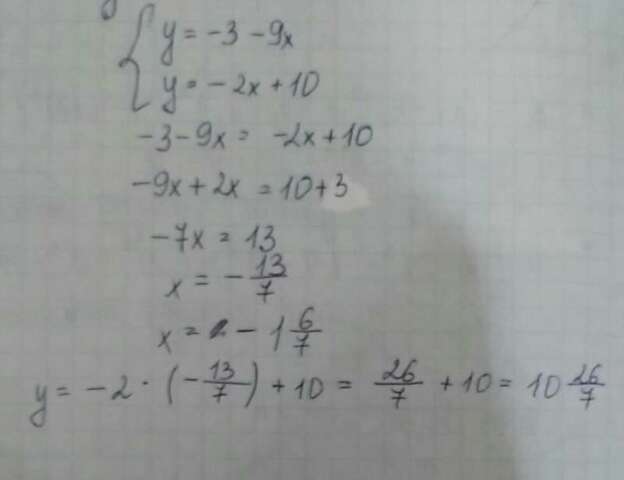 y = -3 - 9x
y = -2x + 10
-3 - 9x = -2x + 10
-9x + 2x = 10 + 3
-7x = 13
x = -13/7
x = -1 6/7
y = -2 · (-13/7) + 10 = 26/7 + 10 = 10 26/7